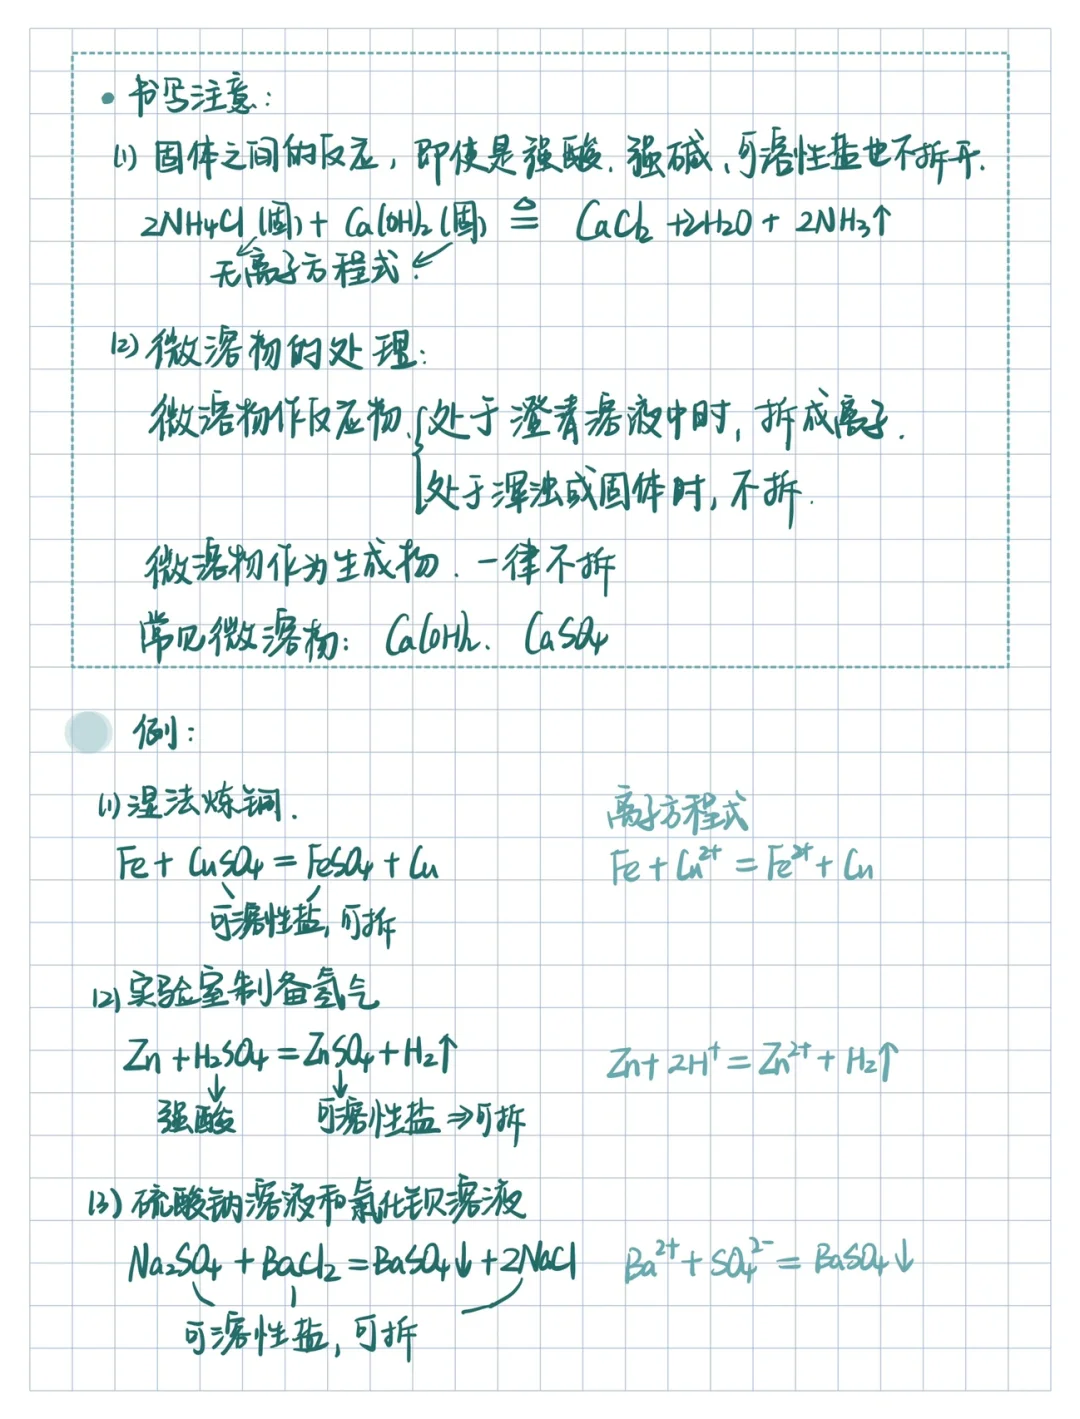 • 书写注意:
(1) 固体之间的反应, 即使是强酸、强碱、可溶性盐也不拆开.
2NH₄Cl (固) + Ca(OH)₂ (固) ≜ CaCl₂ + 2H₂O + 2NH₃↑
无离子方程式.
(2) 微溶物的处理:
微溶物作反应物 { 处于澄清溶液中时, 拆成离子.
处于浑浊或固体时, 不拆.
微溶物作为生成物. 一律不拆
常见微溶物: Ca(OH)₂、CaSO₄
例:
(1) 湿法炼铜.
离子方程式
Fe + CuSO₄ = FeSO₄ + Cu
Fe + Cu²⁺ = Fe²⁺ + Cu
可溶性盐, 可拆
(2) 实验室制备氢气
Zn + H₂SO₄ = ZnSO₄ + H₂↑
Zn + 2H⁺ = Zn²⁺ + H₂↑
强酸 可溶性盐 ⇒ 可拆
(3) 硫酸钠溶液和氯化钡溶液
Na₂SO₄ + BaCl₂ = BaSO₄↓ + 2NaCl
Ba²⁺ + SO₄²⁻ = BaSO₄↓
可溶性盐, 可拆